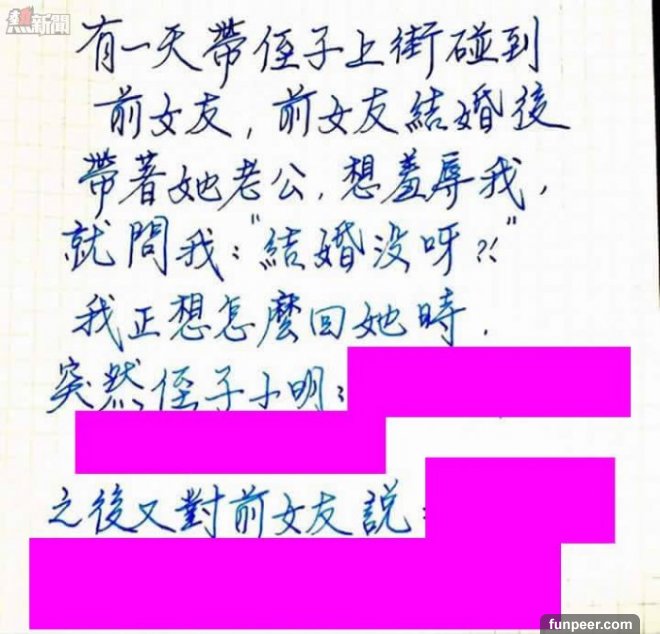 熱新聞
有一天帶侄子上街碰到
前女友, 前女友結婚後
帶著她老公, 想羞辱我,
就問我:"結婚没呀?!"
我正想怎麼回她時,
突然侄子小明:
之後又對前女友説:
funpeer.com